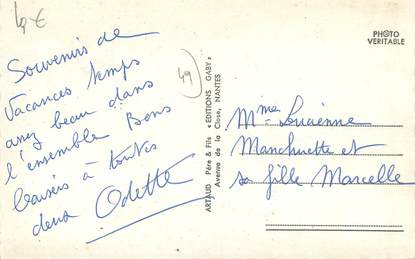 4€
49
Souvenirs de
Vacances temps
assez beau dans
l'ensemble Bons
baisers à toutes
deux Odette
ARTAUD Père & Fils "EDITIONS GABY"
Avenue de la Close, NANTES
PHOTO
VERITABLE
Mme Lucienne
Manchuette et
sa fille Marcelle